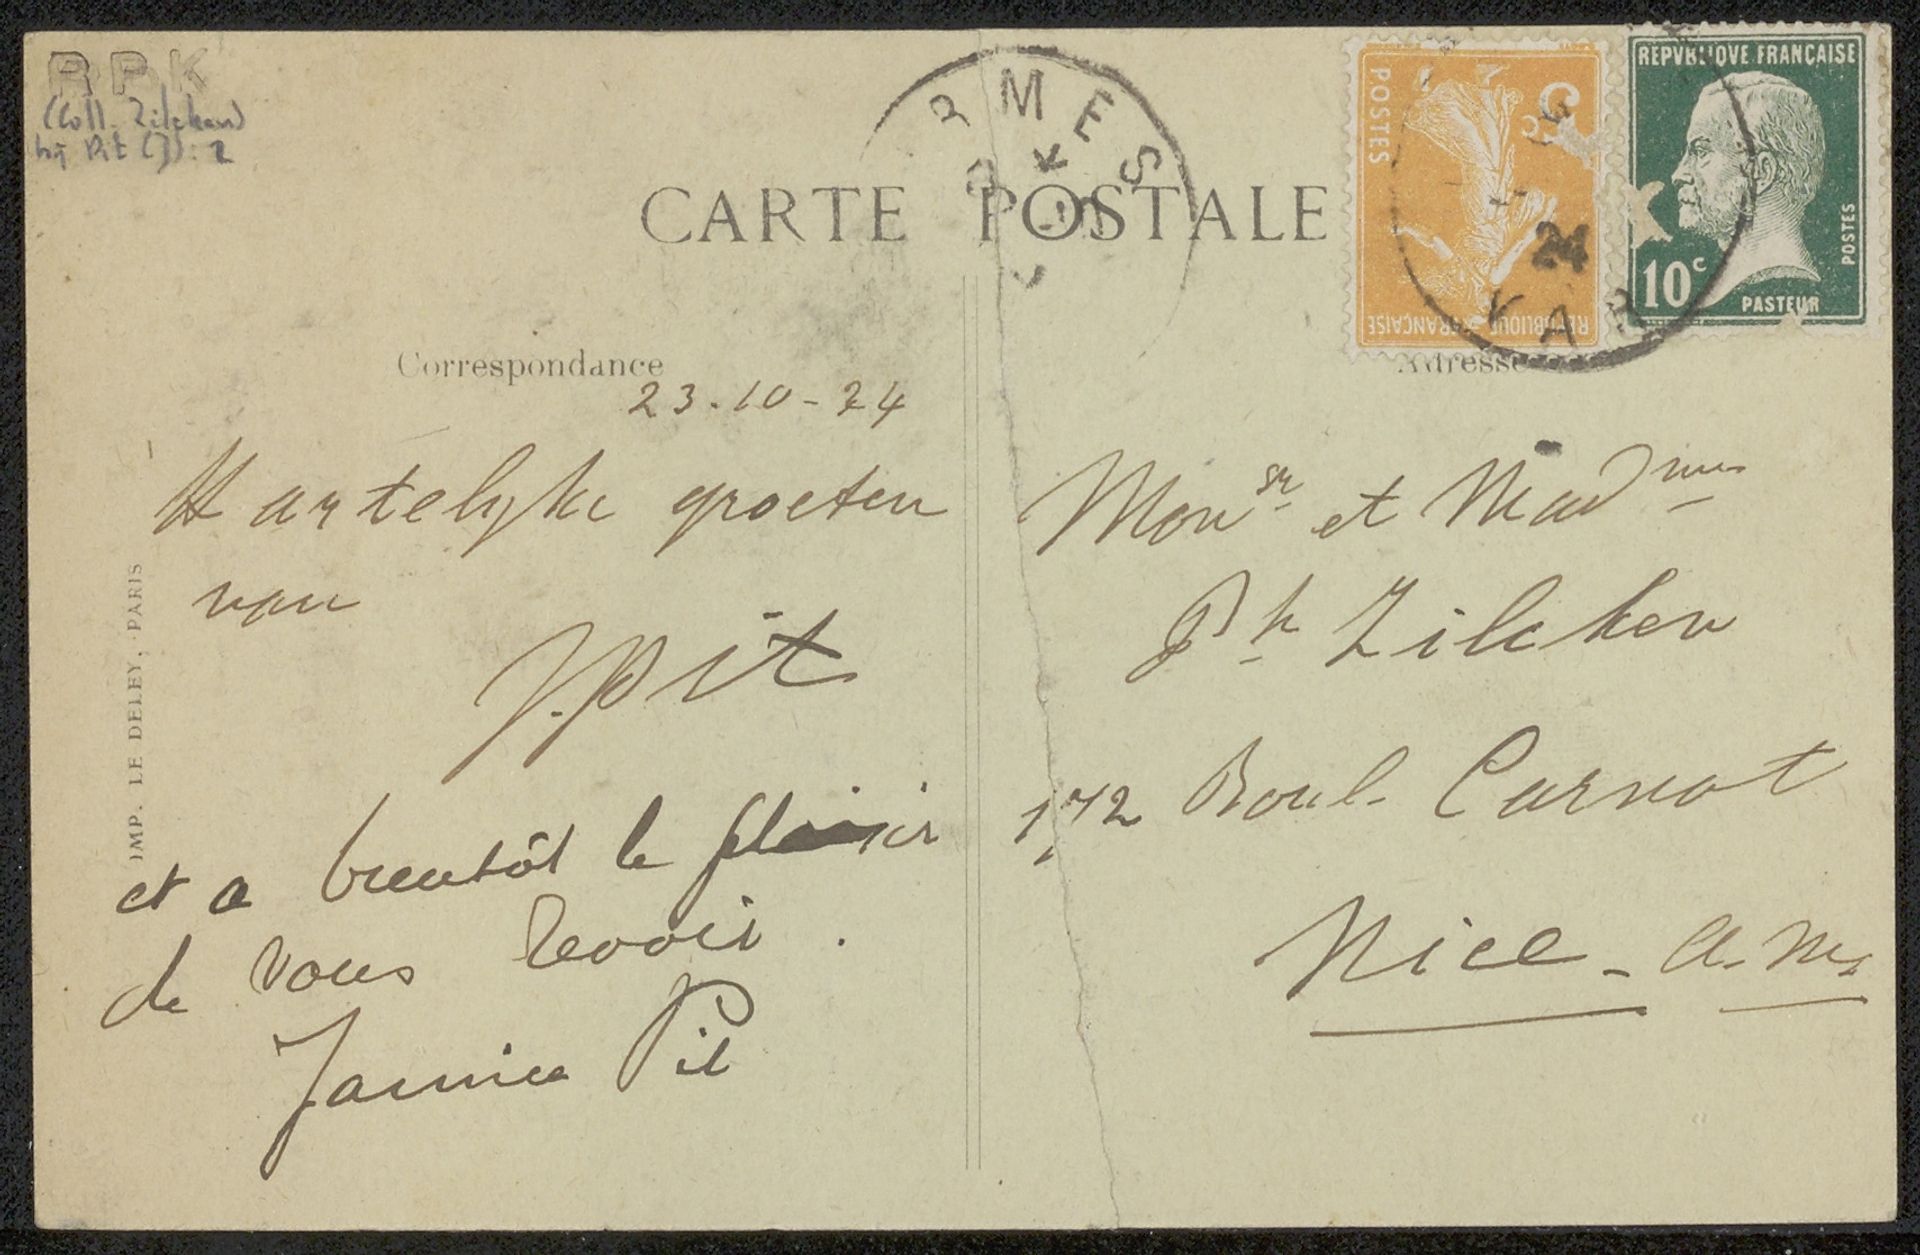 RPK
(Coll. Zilcken)
bij Pit (J): 2
RMES
24
VAR
POSTES
5c
REPUBLIQUE FRANÇAISE
REPVBLIQVE FRANÇAISE
10c
PASTEUR
POSTES
CARTE POSTALE
Correspondance
Adresse
23.10-24
Hartelyke groeten
van
J. Pit
et a bientôt le plaisir
de vous revoir.
Pit
IMP. LE DELEY, PARIS
Monsr et Madme
Ph Zilcken
172 Boul. Carnot
Nice - A. M.